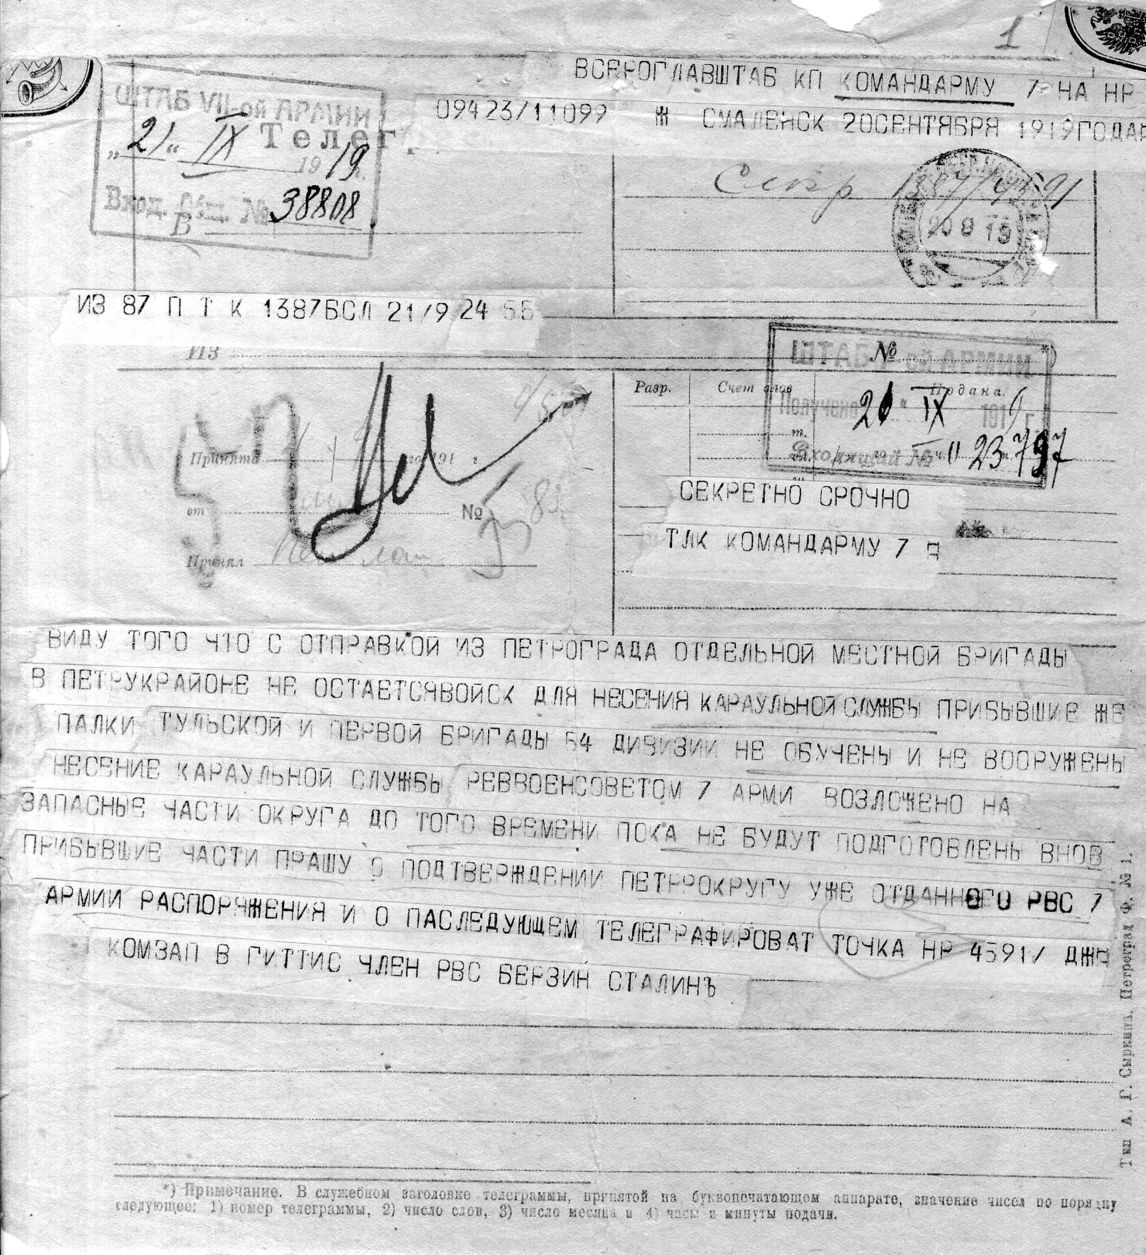 1
ВСЕРОГЛАВШТАБ КП КОМАНДАРМУ 7 НА НР
09423/11099 Ж СМАЛЕНСК 20СЕНТЯБРЯ 1919ГОДА
ШТАБ VII-ой АРМИИ
„21" IX 1919 г.
Вход. Общ. № 38808
Телег
В
Секр
20 9 19
ИЗ 87 П Т К 1387БСЛ 21/9 24 55
ИЗ
ШТАБ ой АРМИИ
№
Получено 21 " IX 1919 г.
Входящий № 23797
Разр. Счет слов Подана.
Принята 191 г.
от №
Принял
СЕКРЕТНО СРОЧНО
ТЛК КОМАНДАРМУ 7
ВИДУ ТОГО ЧТО С ОТПРАВКОЙ ИЗ ПЕТРОГРАДА ОТДЕЛЬНОЙ МЕСТНОЙ БРИГАДЫ
В ПЕТРУКРАЙОНЕ НЕ ОСТАЕТСЯВОЙСК ДЛЯ НЕСЕНИЯ КАРАУЛЬНОЙ СЛУЖБЫ ПРИБЫВШИЕ ЖЕ
ПАЛКИ ТУЛЬСКОЙ И ПЕРВОЙ БРИГАДЫ 54 ДИВИЗИИ НЕ ОБУЧЕНЫ И НЕ ВООРУЖЕНЫ
НЕСЕНИЕ КАРАУЛЬНОЙ СЛУЖБЫ РЕВВОЕНСОВЕТОМ 7 АРМИ ВОЗЛОЖЕНО НА
ЗАПАСНЫЕ ЧАСТИ ОКРУГА ДО ТОГО ВРЕМЕНИ ПОКА НЕ БУДУТ ПОДГОТОВЛЕНЫ ВНОВ
ПРИБЫВШИЕ ЧАСТИ ПРАШУ О ПОДТВЕРЖДЕНИИ ПЕТРОКРУГУ УЖЕ ОТДАННОГО РВС 7
АРМИИ РАСПОРЯЖЕНИЯ И О ПАСЛЕДУЮЩЕМ ТЕЛЕГРАФИРОВАТ ТОЧКА НР 4591/ ДЖЕ
КОМЗАП В ГИТТИС ЧЛЕН РВС БЕРЗИН СТАЛИНЪ
Тип А. Г. Сыркина. Петроград Ф. № 1.
*) Примечание. В служебном заголовке телеграммы, принятой на буквопечатающем аппарате, значение чисел по порядку
следующее: 1) номер телеграммы, 2) число слов, 3) число месяца и 4) часы и минуты подачи.